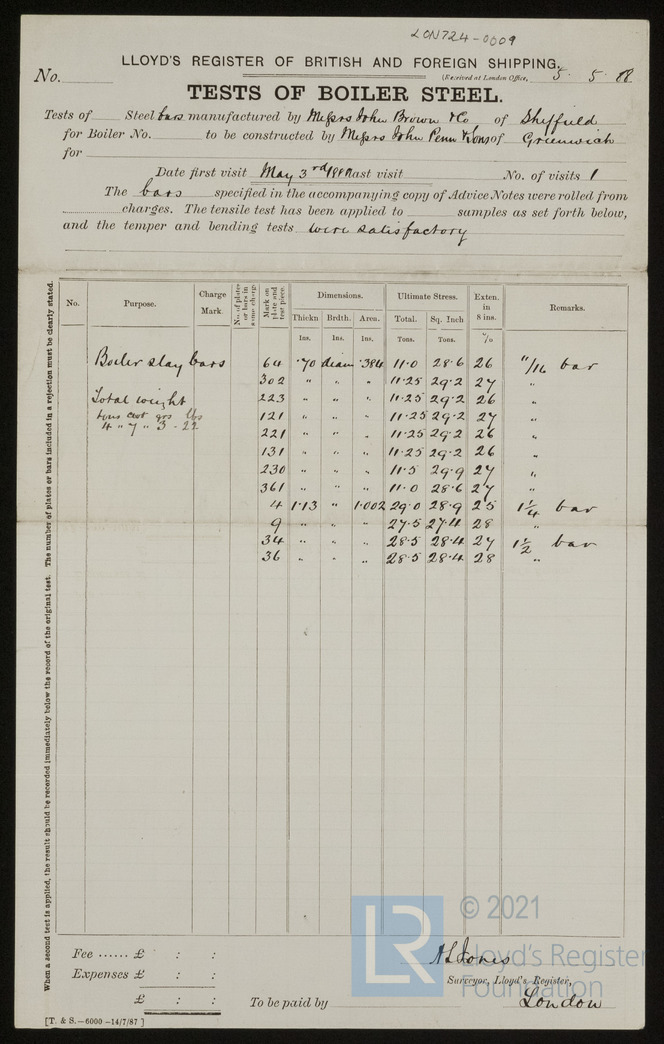 LON724-0009
LLOYD'S REGISTER OF BRITISH AND FOREIGN SHIPPING.
No. (Received at London Office, 5 5 88
TESTS OF BOILER STEEL.
Tests of Steel bars manufactured by Messrs John Brown & Co of Sheffield
for Boiler No. to be constructed by Messrs John Penn & Sons of Greenwich
for
Date first visit May 3rd 1888 last visit No. of visits 1
The bars specified in the accompanying copy of Advice Notes were rolled from
charges. The tensile test has been applied to samples as set forth below,
and the temper and bending tests were satisfactory
When a second test is applied, the result should be recorded immediately below the record of the original test. The number of plates or bars included in a rejection must be clearly stated.
No. Purpose. Charge Mark. No. of plates or bars in same charge. Mark on plate and test piece. Dimensions. Ultimate Stress. Exten. in 8 ins. Remarks.
Thickn Brdth. Area. Total. Sq. Inch
Ins. Ins. Ins. Tons. Tons. %
Boiler stay bars 64 .70 diam .384 11.0 28.6 26 11/16 bar
302 " " " 11.25 29.2 27 "
Total weight 223 " " " 11.25 29.2 26 "
tons cwt qrs lbs 121 " " " 11.25 29.2 27 "
4 " 7 " 3 - 22 221 " " " 11.25 29.2 26 "
131 " " " 11.25 29.2 26 "
230 " " " 11.5 29.9 27 "
361 " " " 11.0 28.6 27 "
4 1.13 " 1.002 29.0 28.9 25 1 1/4 bar
9 " " " 27.5 27.4 28 "
34 " " " 28.5 28.4 27 1 1/2 bar
36 " " " 28.5 28.4 28 "
© 2021
LR Lloyd's Register
Foundation
Fee ...... £ : :
Expenses £ : :
£ : :
A L Jones
Surveyor, Lloyd's Register,
To be paid by London
[T. & S.—6000 -14/7/87]